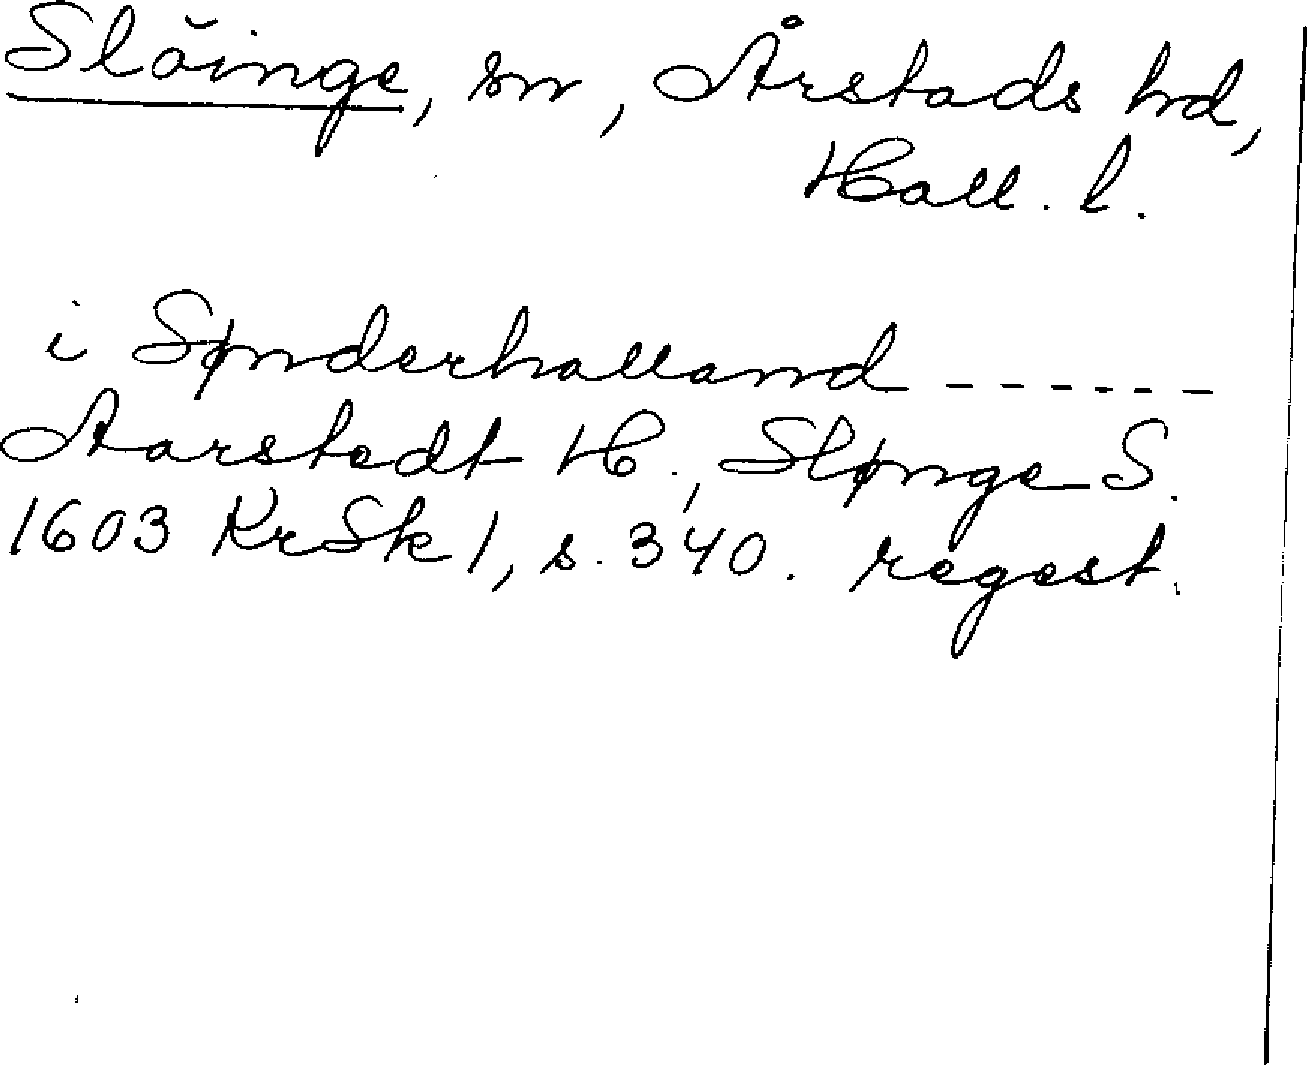 Slöinge, sn, Årstads hd,
Hall. l.
i Sønderhalland ------
Aarstedt H., Slønge S.
1603 KrSk 1, s. 340. regest.